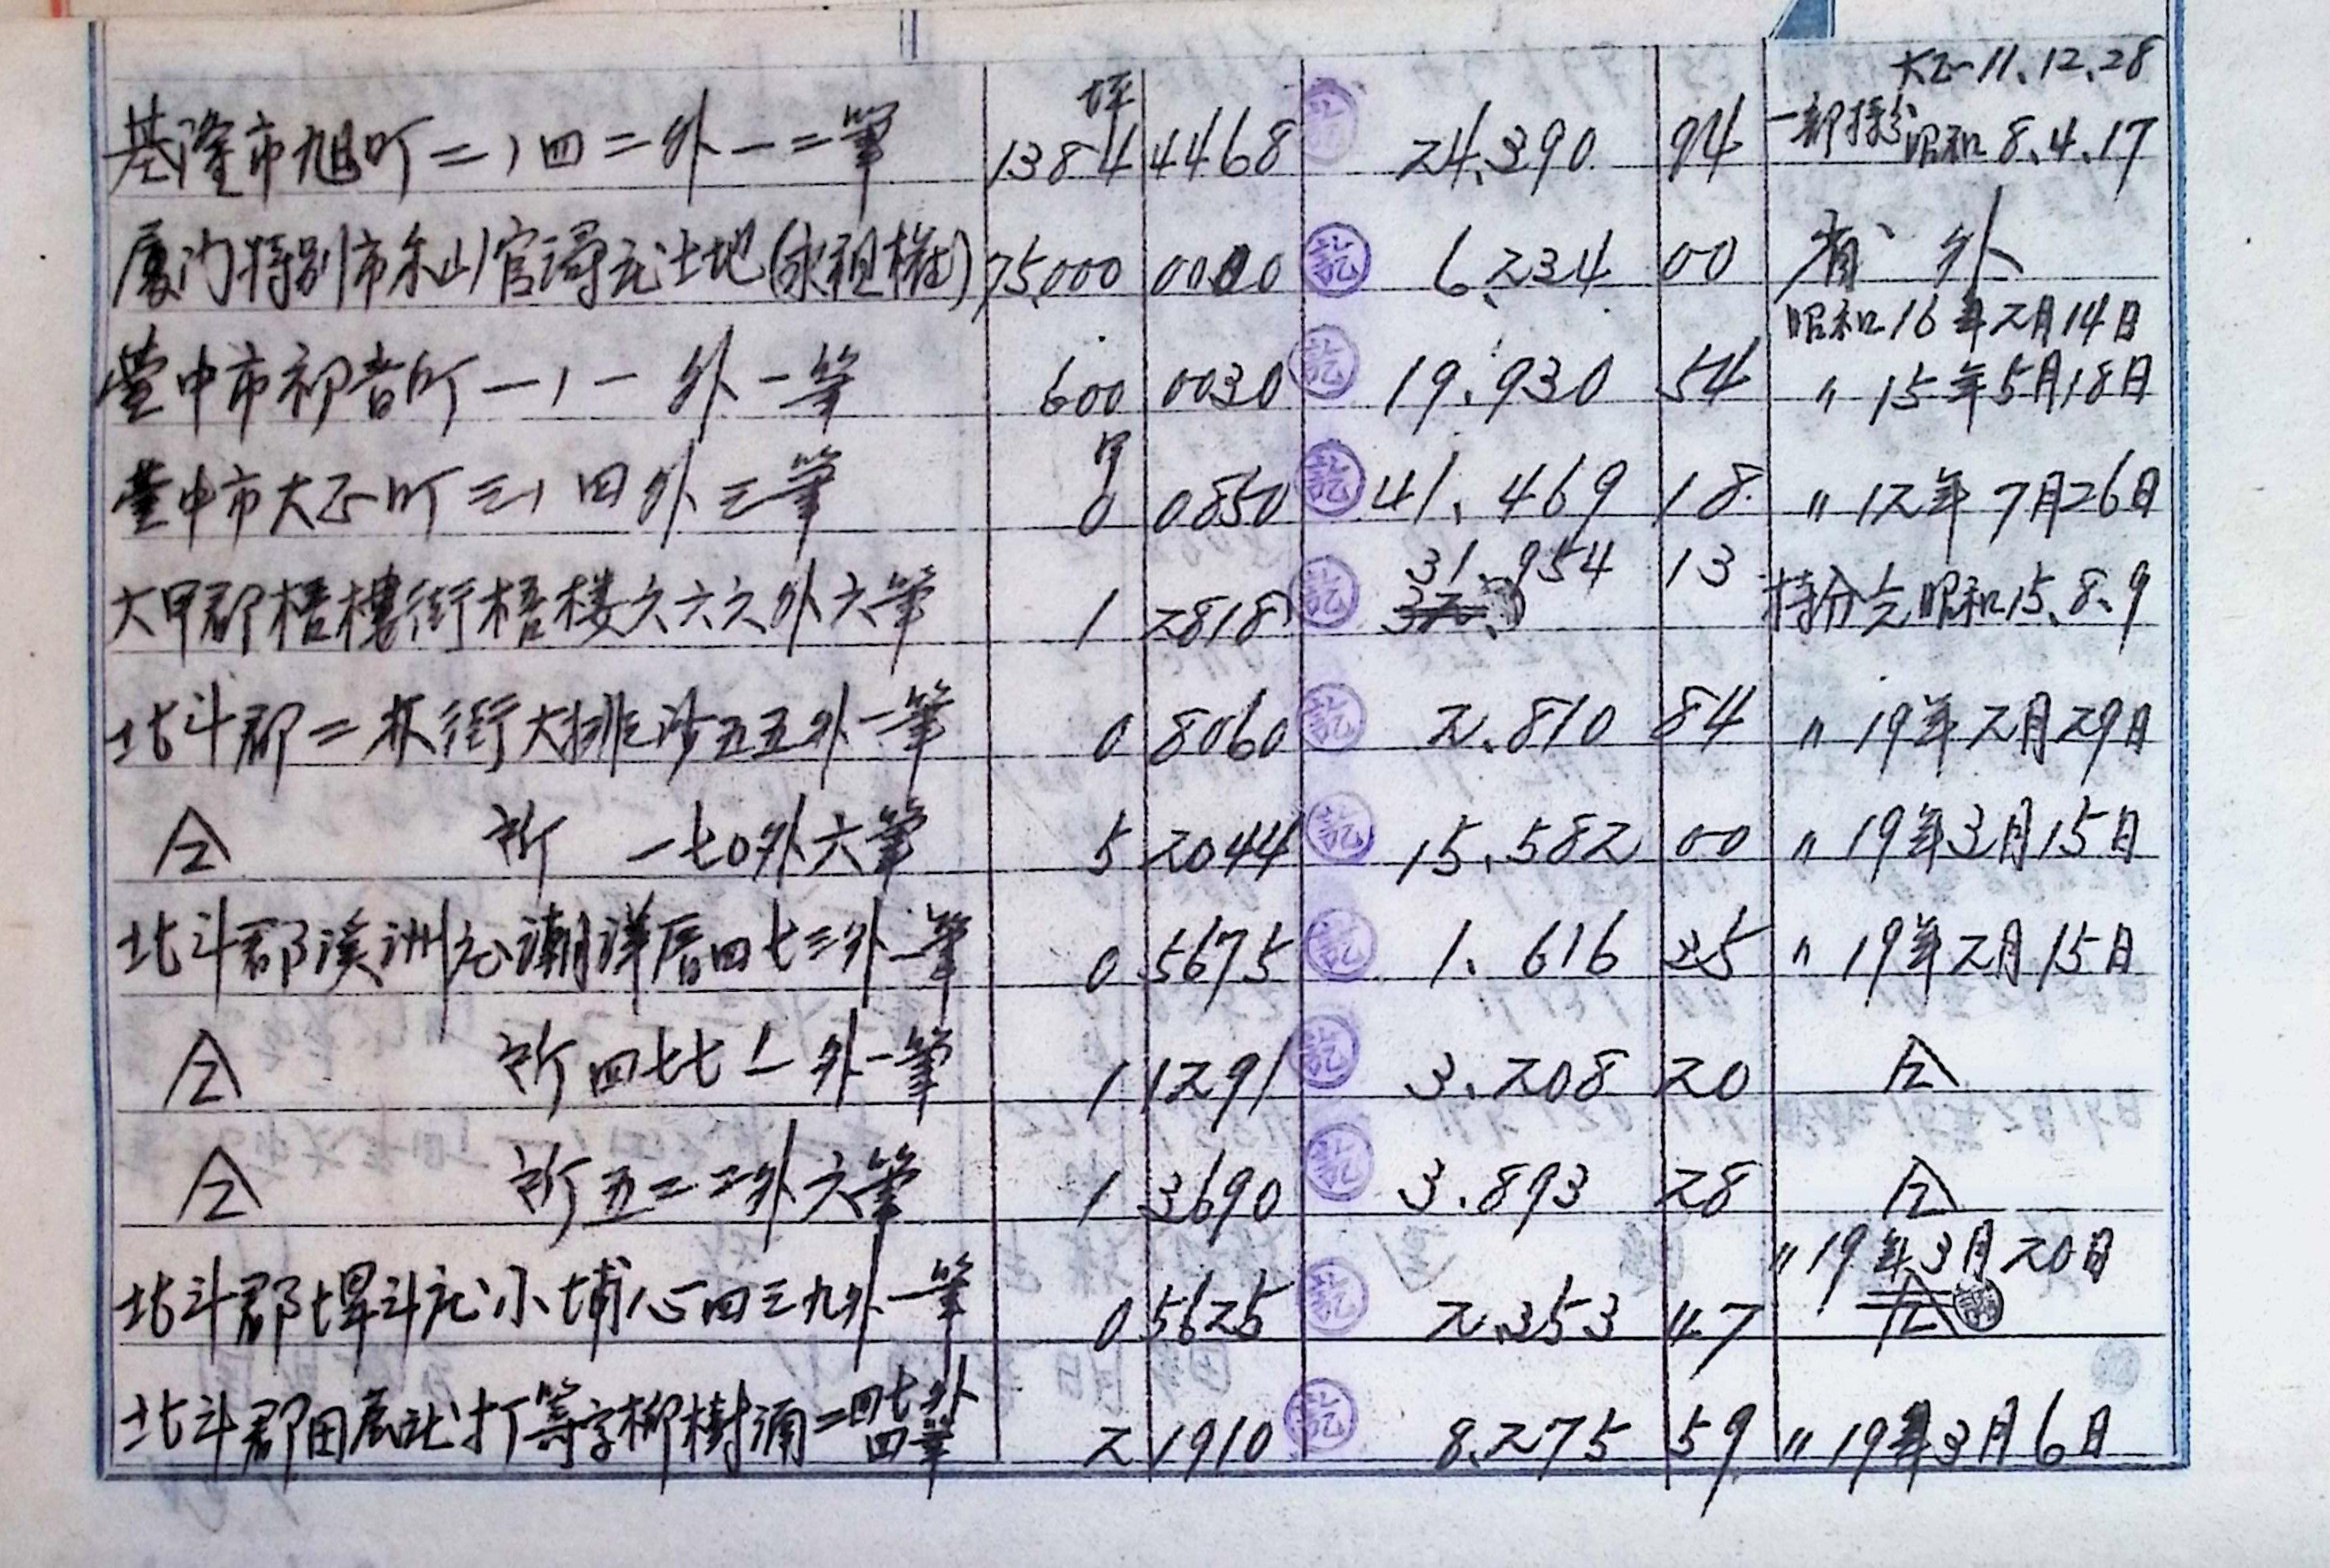 大正11.12.28
坪
基隆市旭町二ノ四二外一二筆 1384 4468 訖 24.390 94 一部持分 昭和8.4.17
厦门特别市禾山官潯 土地(永租権) 75,000 0000 訖 6.234 00 省外
昭和16年2月14日
臺中市初音町一ノ一外一筆 600 0030 訖 19.930 54 〃15年5月18日
甲
臺中市大正町三ノ四外三筆 0 0850 訖 41.469 18 〃12年7月26日
31.954 13
大甲郡梧棲街梧棲六六六外六筆 1 2818 訖 持分 昭和15.8.9
北斗郡二林街大排沙五五外一筆 0 8060 訖 2.810 84 〃19年2月29日
仝 所 一七〇外六筆 5 2044 訖 15.582 00 〃19年3月15日
北斗郡溪洲庄潮洋厝四七三外一筆 0 5675 訖 1.616 35 〃19年2月15日
仝 所四七七ノ一外一筆 1 1291 訖 3.208 20 仝
仝 所五二二外六筆 1 3690 訖 3.893 28 仝
〃19年3月20日
北斗郡埤斗庄小埔心四三九外一筆 0 5625 訖 2.353 47 仝
北斗郡田尾庄打 字柳樹湳二四七外四筆 2 1910 訖 8.275 59 〃19年3月6日